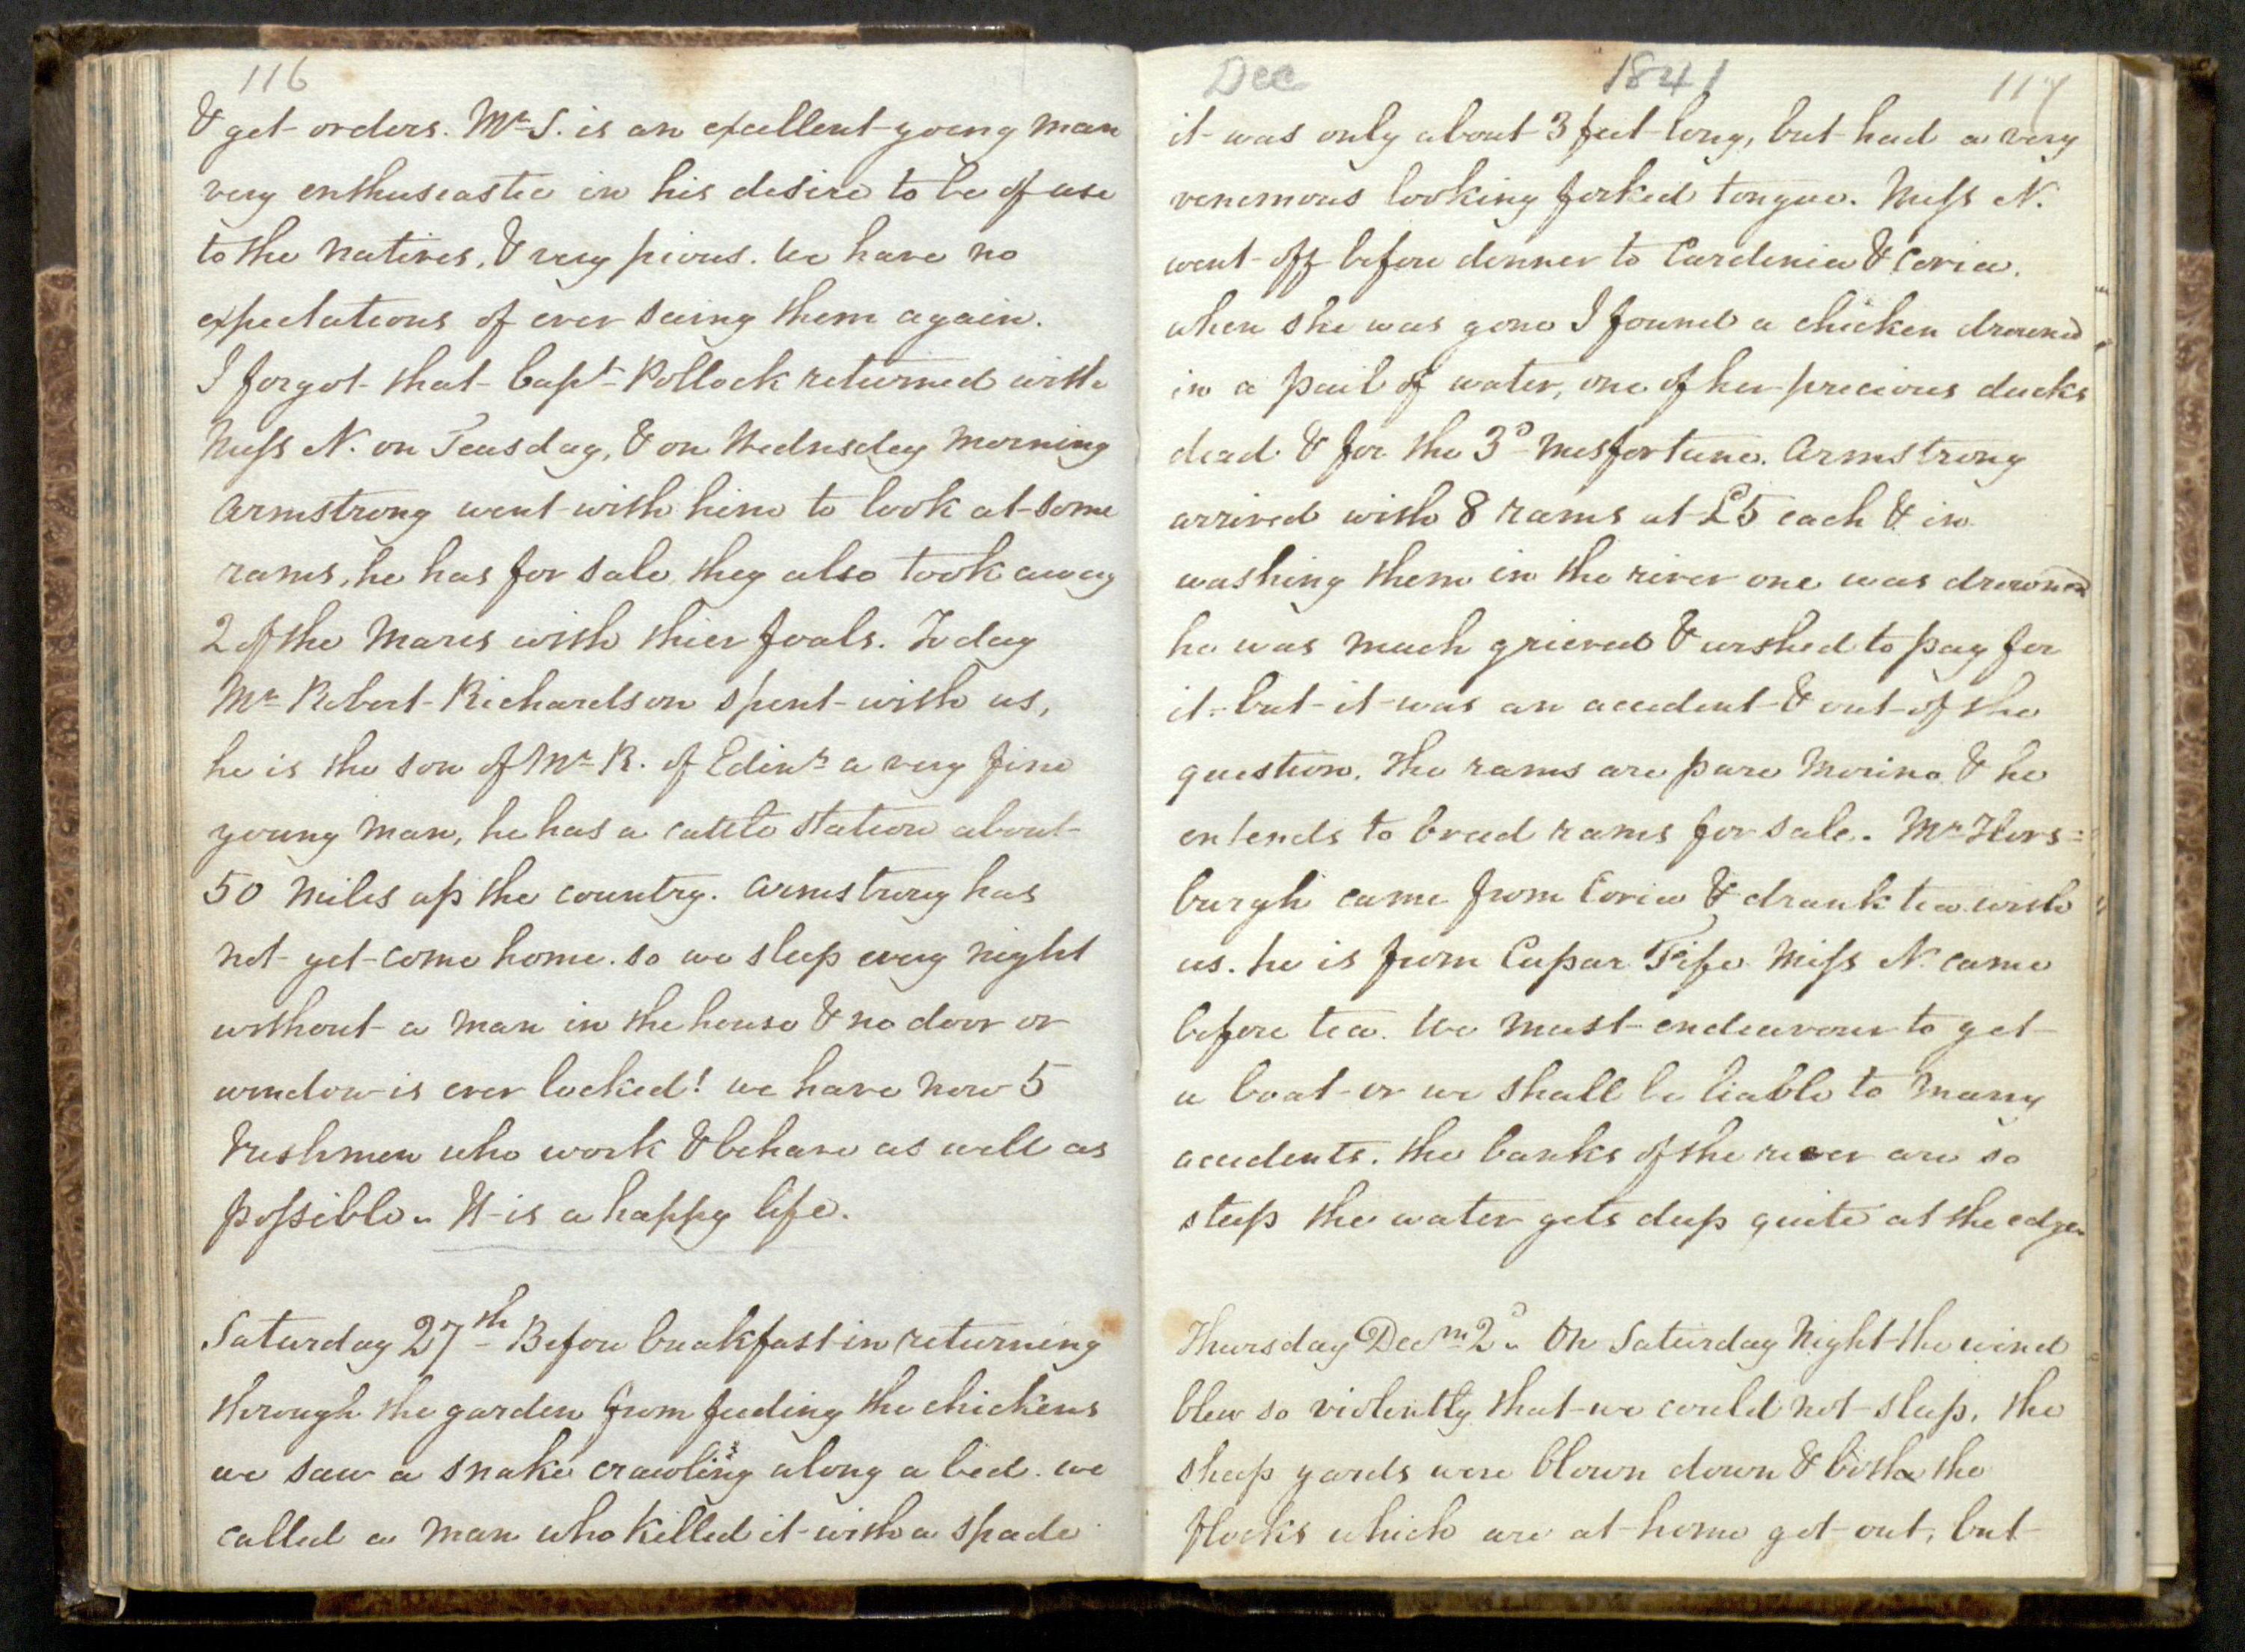 116
& get orders. Mr S. is an excellent young man
very enthuseastic in his desire to be of use
to the natives, & very pious. We have no
expectations of ever seing them again.
I forgot that Capt Pollock returned with
Miss N. on Teusday, & on Wednesday morning
Armstrong went with him to look at some
rams, he has for sale, they also took away
2 of the Mares with thier foals. To day
Mr Robert Richardson spent with us,
he is the son of Mr R. of Edinr a very fine
young man, he has a cattle station about
50 Miles up the country. Armstrong has
not yet come home. so we sleep every night
without a man in the house & no door or
window is ever locked! we have now 5
Irishmen who work & behave as well as
possible. It is a happy life.
Saturday 27th Before breakfast in returning
through the garden from feeding the chickens
we saw a snake crawling along a bed. we
called a man who killed it with a spade
Dec 1841 117
it was only about 3 feet long, but had a very
venomous looking forked tongue. Miss N.
went off before dinner to Cardenia & Coria.
when she was gone I found a chicken drowned
in a pail of water, one of her precious ducks
dead & for the 3d misfortune. Armstrong
arrived with 8 rams at £5 each & in
washing them in the river one was drowned
he was much grieved & wished to pay for
it but it was an accident & out of the
question. The rams are pure Merino & he
entends to breed rams for sale. Mr Hors=
burgh came from Coria & drank tea with
us. he is from Cupar Fife Miss N. came
before tea. We must endeavour to get
a boat or we shall be liable to many
accidents. the banks of the river are so
steep the water gets deep quite at the edge
Thursday Decm 2d On Saturday night the wind
blew so violently that we could not sleep, the
sheep yards were blown down & both the
flocks which are at home get out, but